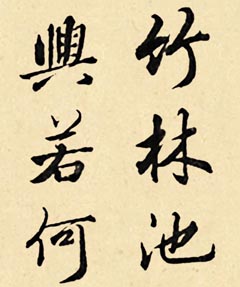 竹林池
興若何